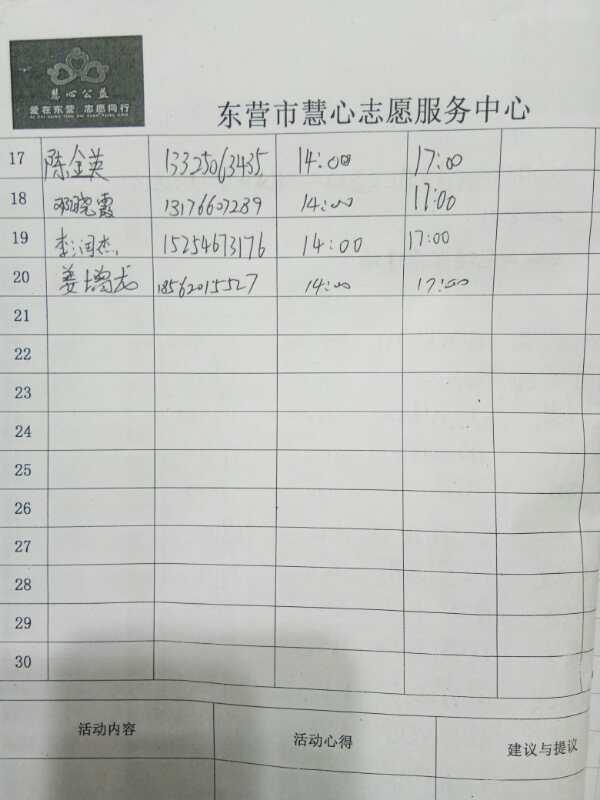 慧心公益
爱在东营 志愿同行
东营市慧心志愿服务中心
17 陈金英 13325063435 14:00 17:00
18 邓晓霞 13176607289 14:00 17:00
19 李润杰 15254673176 14:00 17:00
20 姜增龙 18562015527 14:00 17:00
21
22
23
24
25
26
27
28
29
30
活动内容 活动心得 建议与提议